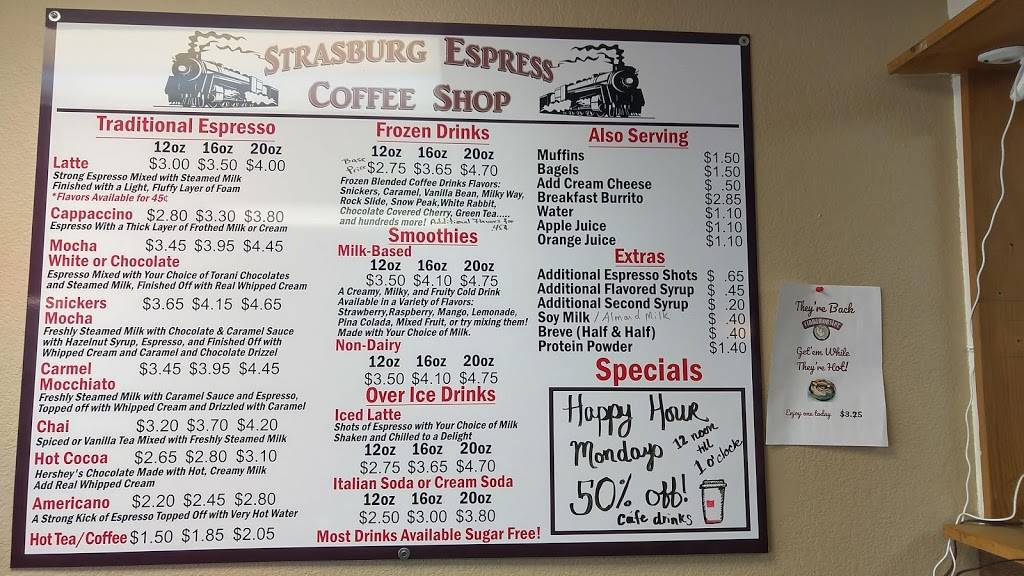 STRASBURG ESPRESS
COFFEE SHOP
Traditional Espresso
12oz 16oz 20oz
Latte $3.00 $3.50 $4.00
Strong Espresso Mixed with Steamed Milk
Finished with a Light, Fluffy Layer of Foam
*Flavors Available for 45¢
Cappaccino $2.80 $3.30 $3.80
Espresso With a Thick Layer of Frothed Milk or Cream
Mocha $3.45 $3.95 $4.45
White or Chocolate
Espresso Mixed with Your Choice of Torani Chocolates
and Steamed Milk, Finished Off with Real Whipped Cream
Snickers $3.65 $4.15 $4.65
Mocha
Freshly Steamed Milk with Chocolate & Caramel Sauce
with Hazelnut Syrup, Espresso, and Finished Off with
Whipped Cream and Caramel and Chocolate Drizzel
Carmel $3.45 $3.95 $4.45
Mocchiato
Freshly Steamed Milk with Caramel Sauce and Espresso,
Topped off with Whipped Cream and Drizzled with Caramel
Chai $3.20 $3.70 $4.20
Spiced or Vanilla Tea Mixed with Freshly Steamed Milk
Hot Cocoa $2.65 $2.80 $3.10
Hershey's Chocolate Made with Hot, Creamy Milk
Add Real Whipped Cream
Americano $2.20 $2.45 $2.80
A Strong Kick of Espresso Topped Off with Very Hot Water
Hot Tea/Coffee $1.50 $1.85 $2.05
Frozen Drinks
12oz 16oz 20oz
Base Price $2.75 $3.65 $4.70
Frozen Blended Coffee Drinks Flavors:
Snickers, Caramel, Vanilla Bean, Milky Way,
Rock Slide, Snow Peak,White Rabbit,
Chocolate Covered Cherry, Green Tea.....
and hundreds more! Additional Flavors for .45¢
Smoothies
Milk-Based
12oz 16oz 20oz
$3.50 $4.10 $4.75
A Creamy, Milky, and Fruity Cold Drink
Available in a Variety of Flavors:
Strawberry,Raspberry, Mango, Lemonade,
Pina Colada, Mixed Fruit, or try mixing them!
Made with Your Choice of Milk.
Non-Dairy
12oz 16oz 20oz
$3.50 $4.10 $4.75
Over Ice Drinks
Iced Latte
Shots of Espresso with Your Choice of Milk
Shaken and Chilled to a Delight
12oz 16oz 20oz
$2.75 $3.65 $4.70
Italian Soda or Cream Soda
12oz 16oz 20oz
$2.50 $3.00 $3.80
Most Drinks Available Sugar Free!
Also Serving
Muffins $1.50
Bagels $1.50
Add Cream Cheese $ .50
Breakfast Burrito $2.85
Water $1.10
Apple Juice $1.10
Orange Juice $1.10
Extras
Additional Espresso Shots $ .65
Additional Flavored Syrup $ .45
Additional Second Syrup $ .20
Soy Milk / Almond Milk $ .40
Breve (Half & Half) $ .40
Protein Powder $1.40
Specials
Happy Hour
Mondays 12 noon till 1 o'clock
50% off!
Cafe drinks
They're Back
Get'em While
They're Hot!
Enjoy one today $3.25